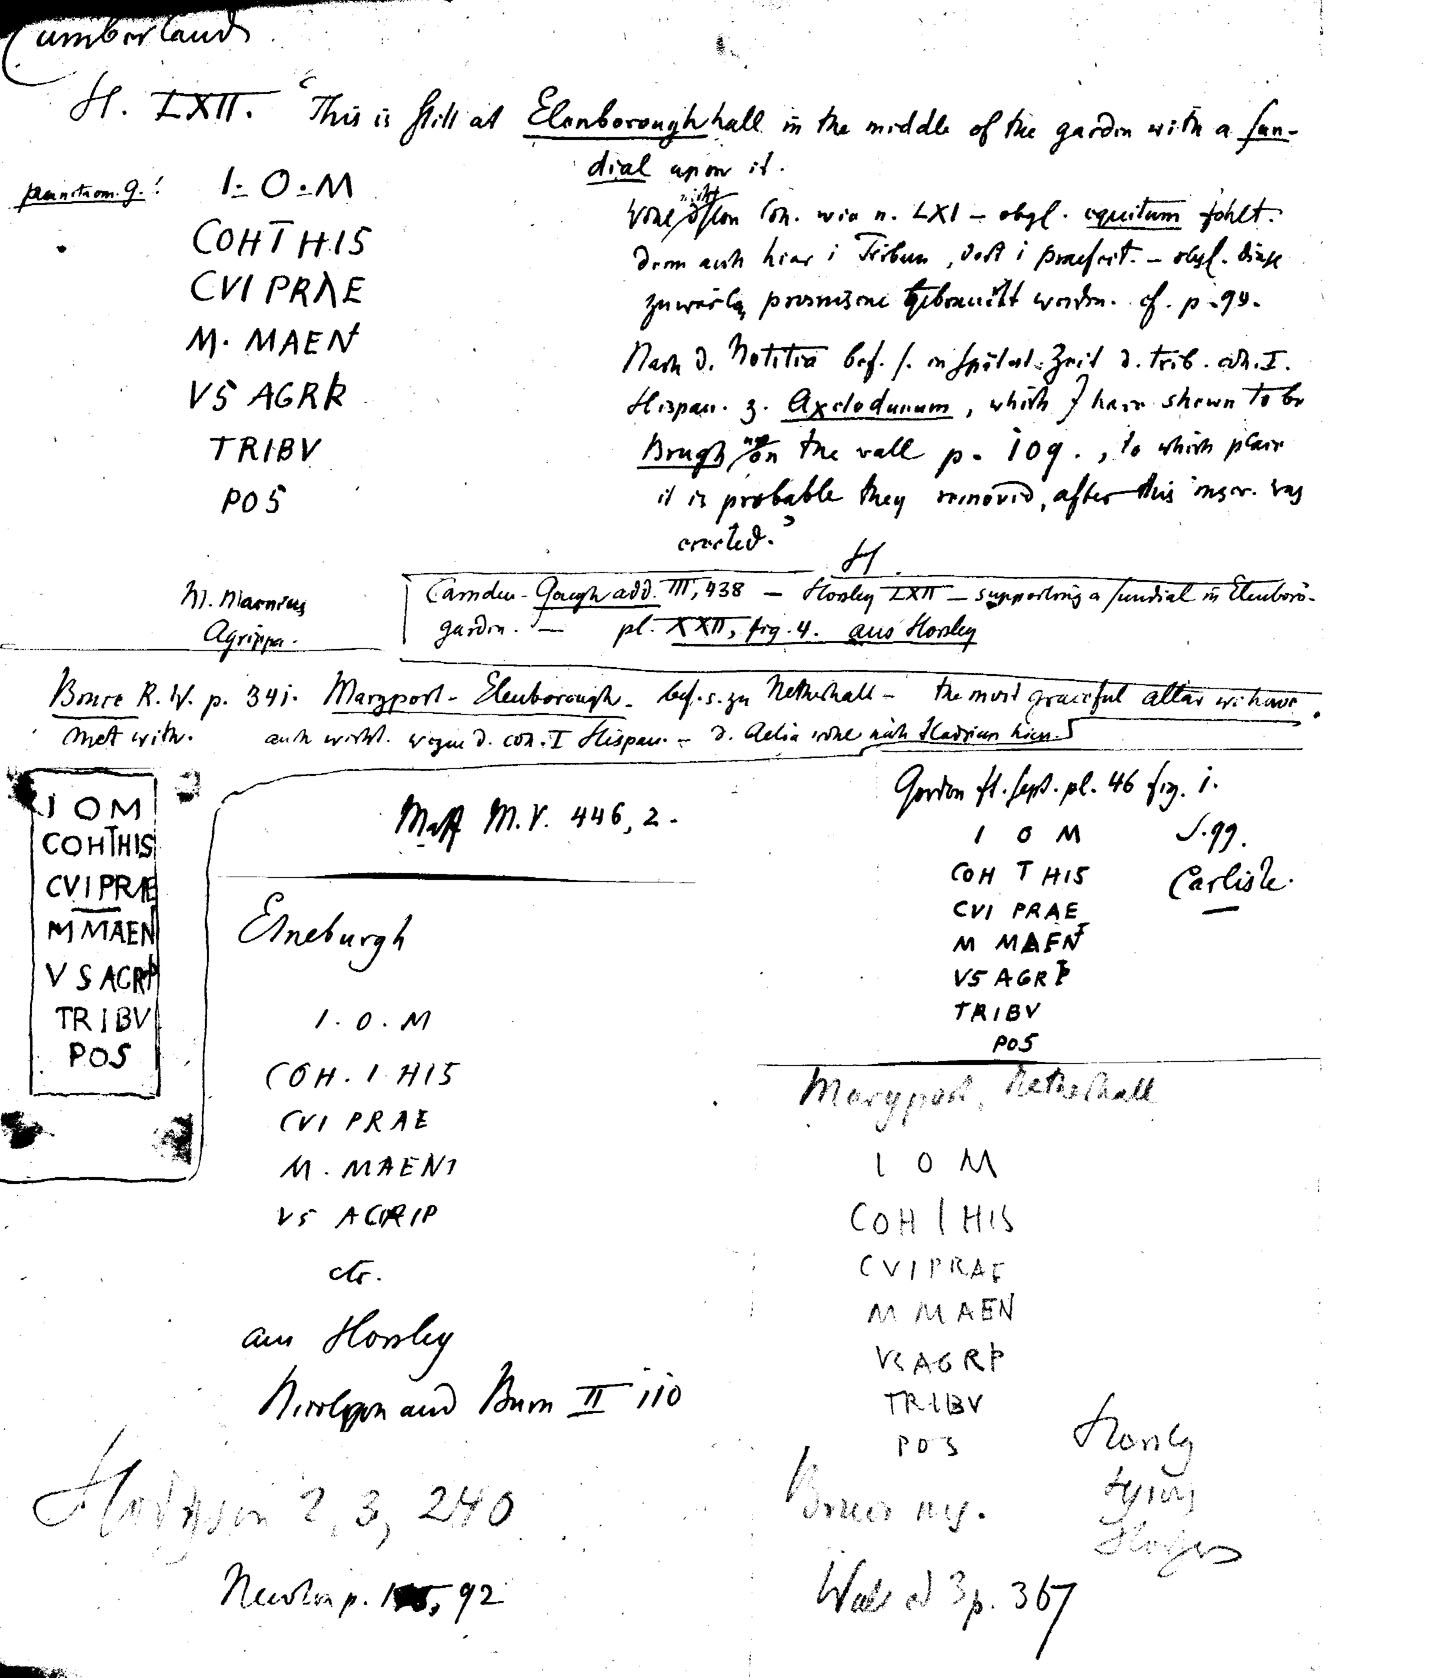 Cumberland
H. LXII. "This is still at Elenborough hall in the middle of the garden with a sun-
dial upon it.
punctuom. g.!
I. O. M
COH I HIS
CVI PRAE
M. MAENI
VS AGRIP
TRIBV
POS
coh. wie n. LXI – obgl. equitum fehlt.
denn auch hier i Tribun, dort i praefect. – obgl. diese
promiscue gebraucht werden. cf. p. 94.
Nach d. Notitia bef. s. in spätest. Zeit d. trib. coh. I.
Hispan. z. Axelodunum, which I have shewn to be
Brugh upon the wall p. 109., to which place
it is probable they removed, after this inscr. was
erected."
H.
M. Maenius
Agrippa.
Camden-Gough add. III, 438 – Horsley LXII – supporting a sundial in Elenboro-
garden. – pl. XXII, fig. 4. aus Horsley
Bruce R. W. p. 341. Maryport - Elenborough. bef. s. zu Netherhall – the most graceful altar we have
met with. auch wicht. wegen d. coh. I Hispan. – d. Aelia nach Hadrian hiess
I O M
COH I HIS
CVI PRAE
M MAENI
VS AGRIP
TRIBV
POS
Maff M.V. 446, 2.
Gordon It. sept. pl. 46 fig. 1.
I O M
S. 99.
COH I HIS
Carlisle.
CVI PRAE
M MAENI
VS AGRIP
TRIBV
POS
Elneburgh
I. O. M
COH. I HIS
CVI PRAE
M. MAENI
VS AGRIP
etc.
aus Horsley
Nicolson and Burn II 110
Hodgson 2, 3, 240
Newton p. 92
Maryport, Netherhall
I O M
COH I HIS
CVI PRAE
M MAEN
VS AGRIP
TRIBV
POS
Horsley
Bruce ms.
Lysons
Wall ed 3 p. 367